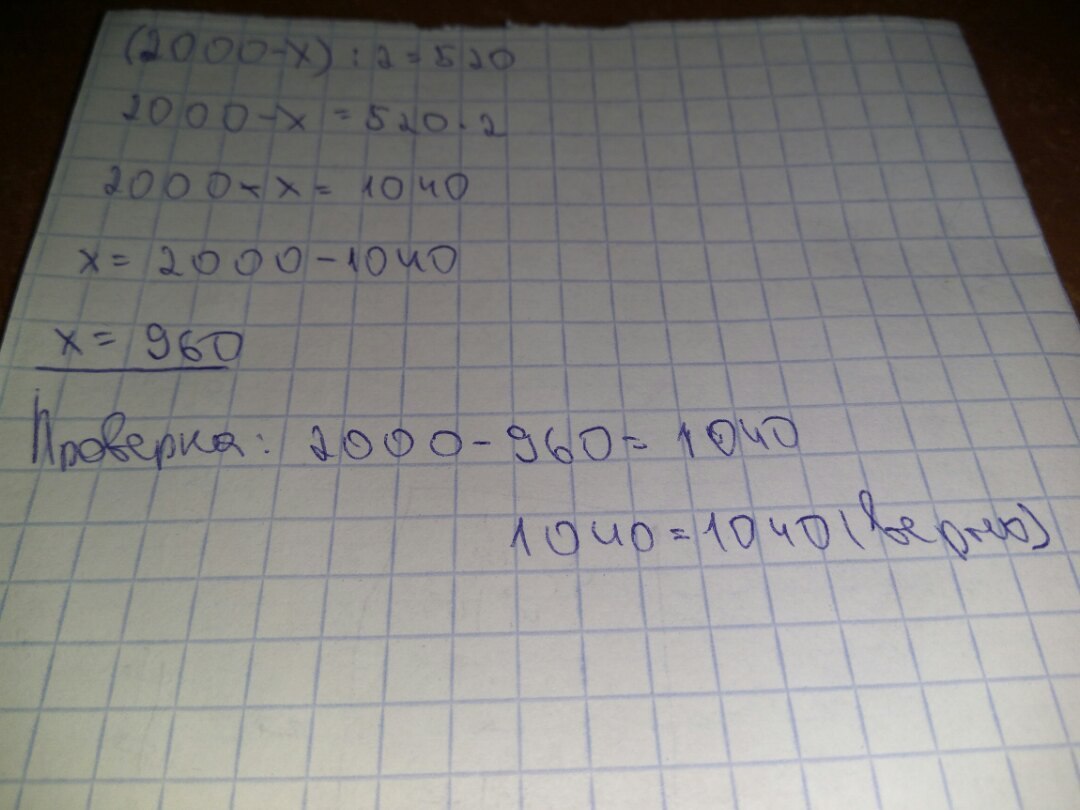 (2000-x):2=520
2000-x=520·2
2000-x=1040
x=2000-1040
x=960
Проверка: 2000-960=1040
1040=1040(верно)